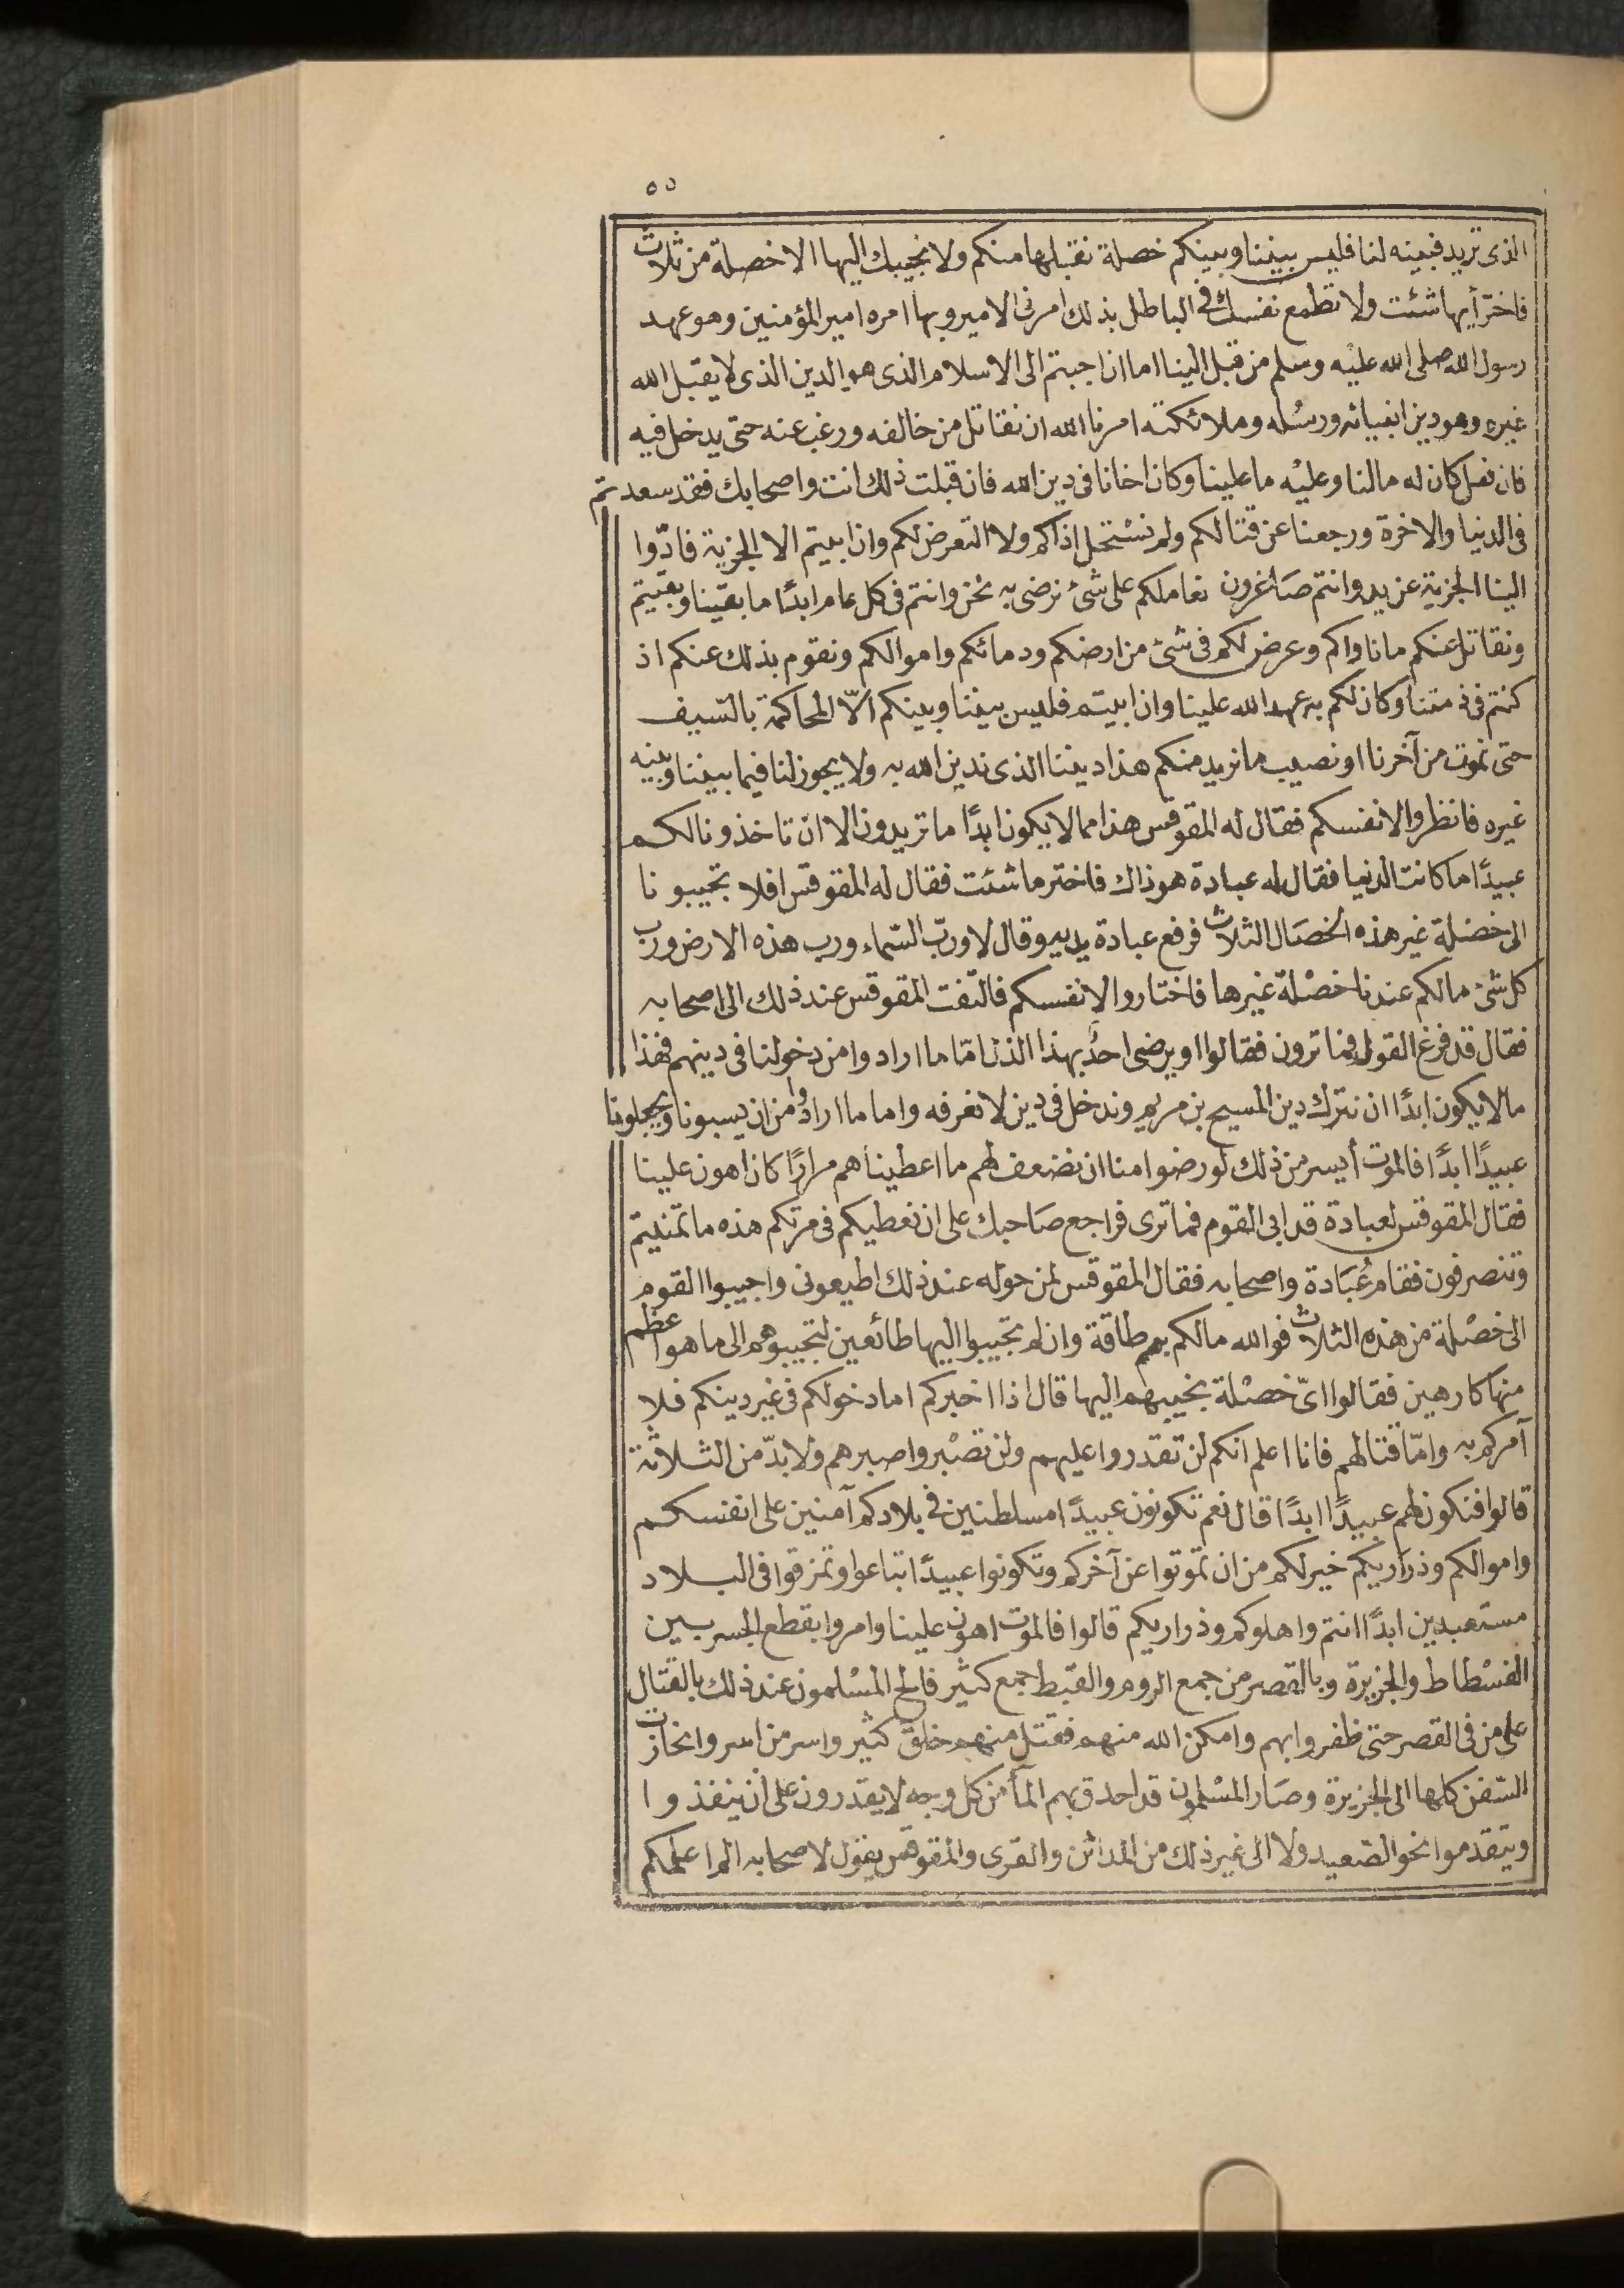 ٥٥
الذى تريد فبينه لنا فليس بيننا وبينكم خصلة نقبلها منكم ولا نجيبك اليها الا خصلة من ثلاث
فاختر أيها شئت ولا تطمع نفسك فى الباطل بذلك امرنى الامير وبها امره امير المؤمنين وهو عهد
رسول الله صلى الله عليه وسلم من قبل الينا اما ان اجبتم الى الاسلام الذى هو الدين الذى لا يقبل الله
غيره وهو دين انبيائه ورسله وملائكته امرنا الله ان نقاتل من خالفه ورغب عنه حتى يدخل فيه
فان فعل كان له مالنا وعليه ما علينا وكان اخانا فى دين الله فان قبلت ذلك انت واصحابك فقد سعدتم
فى الدنيا والاخرة ورجعنا عن قتالكم ولم نستحل اذاكم ولا التعرض لكم وان ابيتم الا الجزية فادّوا
الينا الجزية عن يد وانتم صاغرون نعاملكم على شئ نرضى به نحن وانتم فى كل عام ابدًا ما بقينا وبقيتم
ونقاتل عنكم من ناواكم وعرض لكم فى شئ من ارضكم ودمائكم واموالكم ونقوم بذلك عنكم اذ
كنتم فى ذمتنا وكان لكم به عهد الله علينا وان ابيتم فليس بيننا وبينكم الّا المحاكمة بالسّيف
حتى نموت من آخرنا او نصيب ما نريد منكم هذا ديننا الذى ندين الله به ولا يجوز لنا فيما بيننا وبينه
غيره فانظروا لانفسكم فقال له المقوقس هذا مما لا يكون ابدًا ما تريدون الا ان تاخذونا لكم
عبيدًا ما كانت الدنيا فقال له عبادة هو ذاك فاختر ما شئت فقال له المقوقس افلا تجيبونا
الى خصلة غير هذه الخصال الثلاث فرفع عبادة يديه وقال لا وربّ السّماء ورب هذه الارض ورب
كل شئ مالكم عندنا خصلة غيرها فاختاروا لانفسكم فالتفت المقوقس عند ذلك الى اصحابه
فقال قد فرغ القول فما ترون فقالوا او يرضى احدٌ بهذا الذل امّا ما ارادوا من دخولنا فى دينهم فهذا
مالا يكون ابدًا ان نترك دين المسيح بن مريم وندخل فى دين لا نعرفه واما ما ارادوا من ان يسبونا ويجعلونا
عبيدًا ابدًا فالموت أيسر من ذلك لو رضوا منا ان نضعف لهم ما اعطيناهم مرارًا كان اهون علينا
فقال المقوقس لعبادة قد ابى القوم فما ترى فراجع صاحبك على ان نعطيكم فى مرتكم هذه ما تمنيتم
وتنصرفون فقام عُبادة واصحابه فقال المقوقس لمن حوله عند ذلك اطيعونى واجيبوا القوم
الى خصلة من هذه الثلاث فوالله مالكم بهم طاقة وان لم تجيبوا اليها طائعين لتجيبوهم الى ما هو اعظم
منها كارهين فقالوا اىّ خصلة نجيبهم اليها قال اذا اخبركم اما دخولكم فى غير دينكم فلا
آمركم به وامّا قتالهم فانا اعلم انكم لن تقدروا عليهم ولن تصبروا صبرهم ولا بدّ من الثلاثة
قالوا فنكون لهم عبيدًا ابدًا قال نعم تكونون عبيدًا مسلطنين فى بلادكم آمنين على انفسكم
واموالكم وذراريكم خير لكم من ان تموتوا عن آخركم وتكونوا عبيدًا تباعوا وتمزقوا فى البلاد
مستعبدين ابدًا انتم واهلوكم وذراريكم قالوا فالموت اهون علينا وامروا بقطع الجسر بين
الفسطاط والجزيرة وبالقصر من جمع الروم والقبط جمع كثير فالح المسلمون عند ذلك بالقتال
على من فى القصر حتى ظفروا بهم وامكن الله منهم فقتل منهم خلق كثير واسر من اسر وانحازت
السّفن كلها الى الجزيرة وصار المسلمون قد احدق بهم المأ من كل وجه لا يقدرون على ان ينفذوا
ويتقدموا نحو الصّعيد ولا الى غير ذلك من المدائن والقرى والمقوقس يقول لاصحابه الم اعلمكم